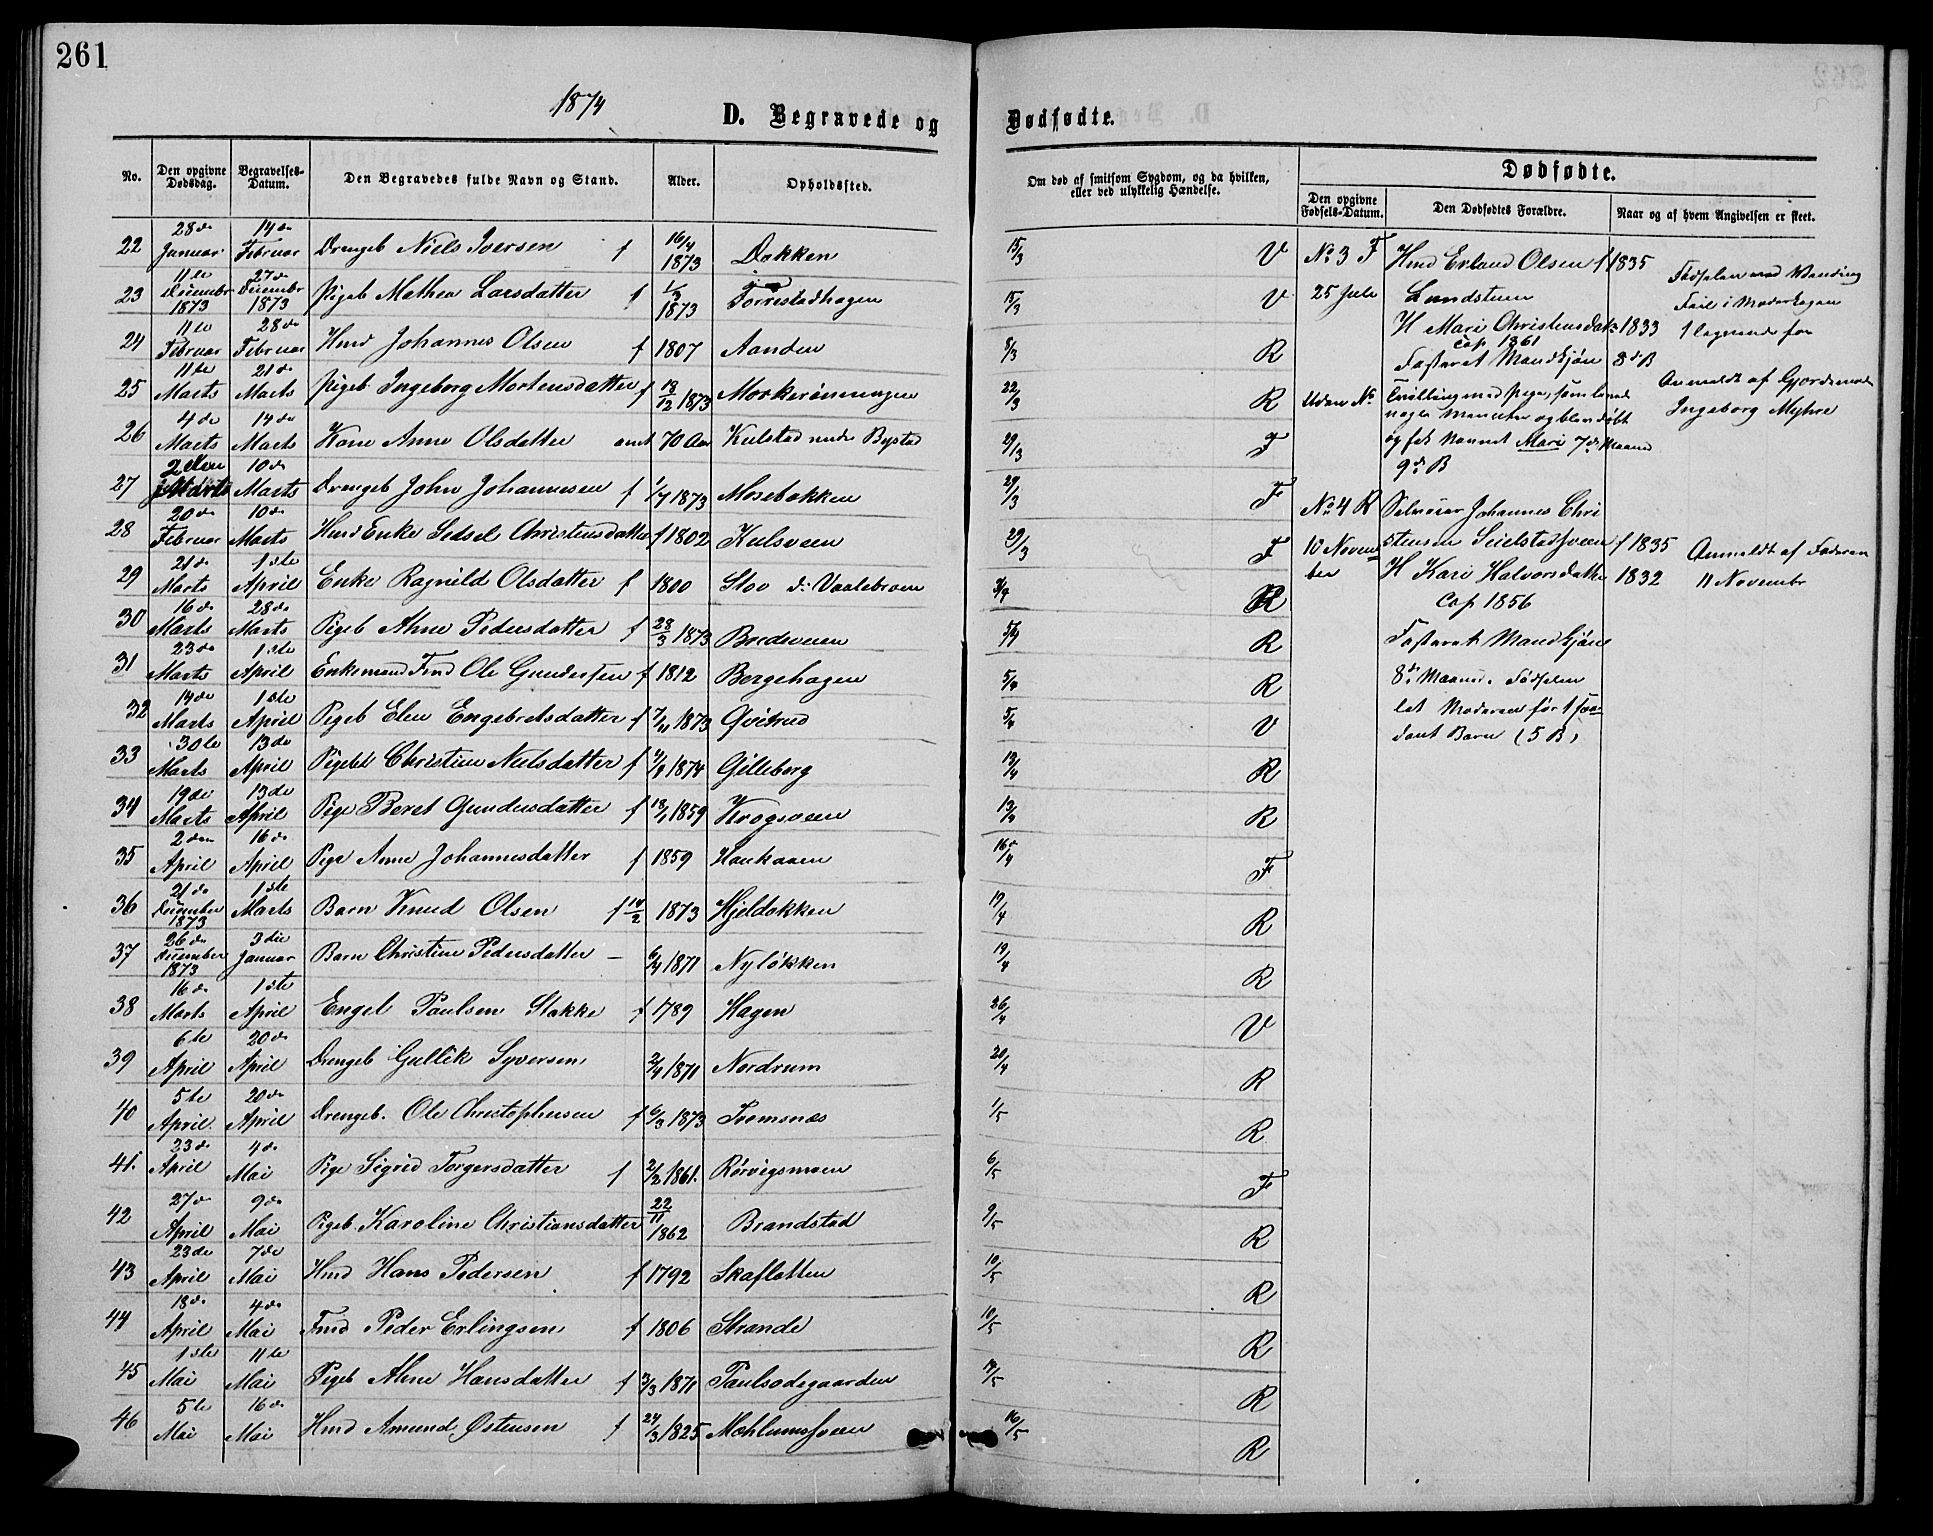 261
1874
D. Begravede og Dødfødte.
No. Den opgivne Dødsdag. Begravelses-Datum. Den Begravedes fulde Navn og Stand. Alder. Opholdssted.
Om død af smitsom Sygdom, og da hvilken, eller ved ulykkelig Hændelse.
Dødfødte.
Den opgivne Fødsels-Datum. Den Dødfødtes Forældre. Naar og af hvem Angivelsen er skeet.
22 28de Januar 14de Februar Drengeb Niels Iversen f 16/4 1873 Dokken 15/3 V
23 11te December 1873 27de December 1873 Pigeb Mathea Larsdatter f 1/3 1873 Torrestadhagen 15/3 V
24 11te Februar 28de Februar Hmd Johannes Olsen f 1807 Aanden 8/3 R
25 11te Marts 21de Marts Pigeb Ingeborg Mortensdatter f 13/12 1873 Morkerönningen 22/3 R
26 4de Marts 14de Marts Kone Anne Olsdatter omt 70 Aar Kulstad nedre Bystad 29/3 F
27 2den Marts 10de Marts Drengeb John Johannesen f 1/7 1873 Mosebakken 29/3 F
28 20de Februar 10de Marts Hmd Enke Sidsel Christensdatter f 1802 Kulsveen 29/3 F
29 21de Marts 1ste April Enke Ragnild Olsdatter f 1800 Stov d: Vaalebroen R
30 16de Marts 28de Marts Pigeb Ahne Pedersdatter f 28/3 1873 Bredeveien R
31 23de Marts 1ste April Enkemand Fmd Ole Gundersen f 1812 Bergehagen 5/4 R
32 14de Marts 1ste April Pigeb Elen Engebretsdatter f 7/11 1873 Gvitrud 5/4 V
33 30te Marts 13de April Pigeb Christine Nielsdatter f 1874 Gilleberg 13/4 R
34 19de Marts 13de April Pige Beret Gundersdatter f 18/1 1859 Krogsveen R
35 2den April 16de April Pige Anne Johannesdatter f 1859 Haukaaen 16/4 F
36 21de December 1873 1ste Marts Barn Knud Olsen f 14/2 1873 Hjeldokken 19/4 R
37 26de December 1873 3die Januar Barn Christine Pedersdatter – 6/4 1871 Nylökken 19/4 R
38 16de Marts 1ste April Engel Paulsen Stakke f 1789 Hagen 26/4 V
39 6te April 20de April Drengeb Gullik Syversen 2/4 1871 Nordrum 20/4 R
40 5te April. 20de April Drengeb. Ole Christophersen f 6/3 1873 Tromsnæs 1/5 R
41. 23de April 4de Mai Pige Sigrid Torgersdatter f 2/2 1861. Rörvigsmoen 6/5 F
42 27de April 9de Mai Pigeb. Karoline Christiansdatter 22/11 1862 Brandstad 9/5 R
43 23de April 7de Mai Hmd Hans Pedersen f 1792 Skafletten 10/5 R
44 18de April 4de Mai Fmd Peder Erlingsen f 1806 Strande 10/5 R
45 1ste Mai 11te Mai Pigeb Ahne Hansdatter f 3/3 1871 Paulsodegaarden 14/5 R
46 5te Mai 16de Mai Hmd Amund Østensen f 24/3 1825 Mehlumsveen 16/5 R
No 3 F Hmd Erland Olsen f 1835
25 Juli Lundsteen
H Mari Christensdatr 1833
cop 1861
Fosteret Mandkjön 3de B
Fødselen med Vending
Feil i Moderkagen
1 lignende før
Uden No Tvilling med Pige, som levede
nogle Minuter og blev döbt
og fik Navnet Mari 7de Maaned
9de B
Anmeldt af Gjordemoder
Ingeborg Myhre
No 4 R Selveier Johannes Chri
10 November stensen Seielstadsveen f 1835
H Kari Halvorsdatter 1832
Cop 1856
Fosteret Mandkjön
8de Maaned. Födselen
let Moderen för 1 saa-
dant Barn (5 B)
Anmeldt af Faderen
11 Novembr